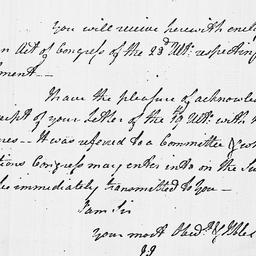 You will receive herewith encl
an Act of Congress of the 23d Ult: respecting
ment—
I have the pleasure of acknowled
ceipt of your Letter of the 19 Ult: with
res— It was referred to a Committee &
tions Congress may enter into on the Su
be immediately transmitted to you—
I am Sir
your most Obed.t & Hble